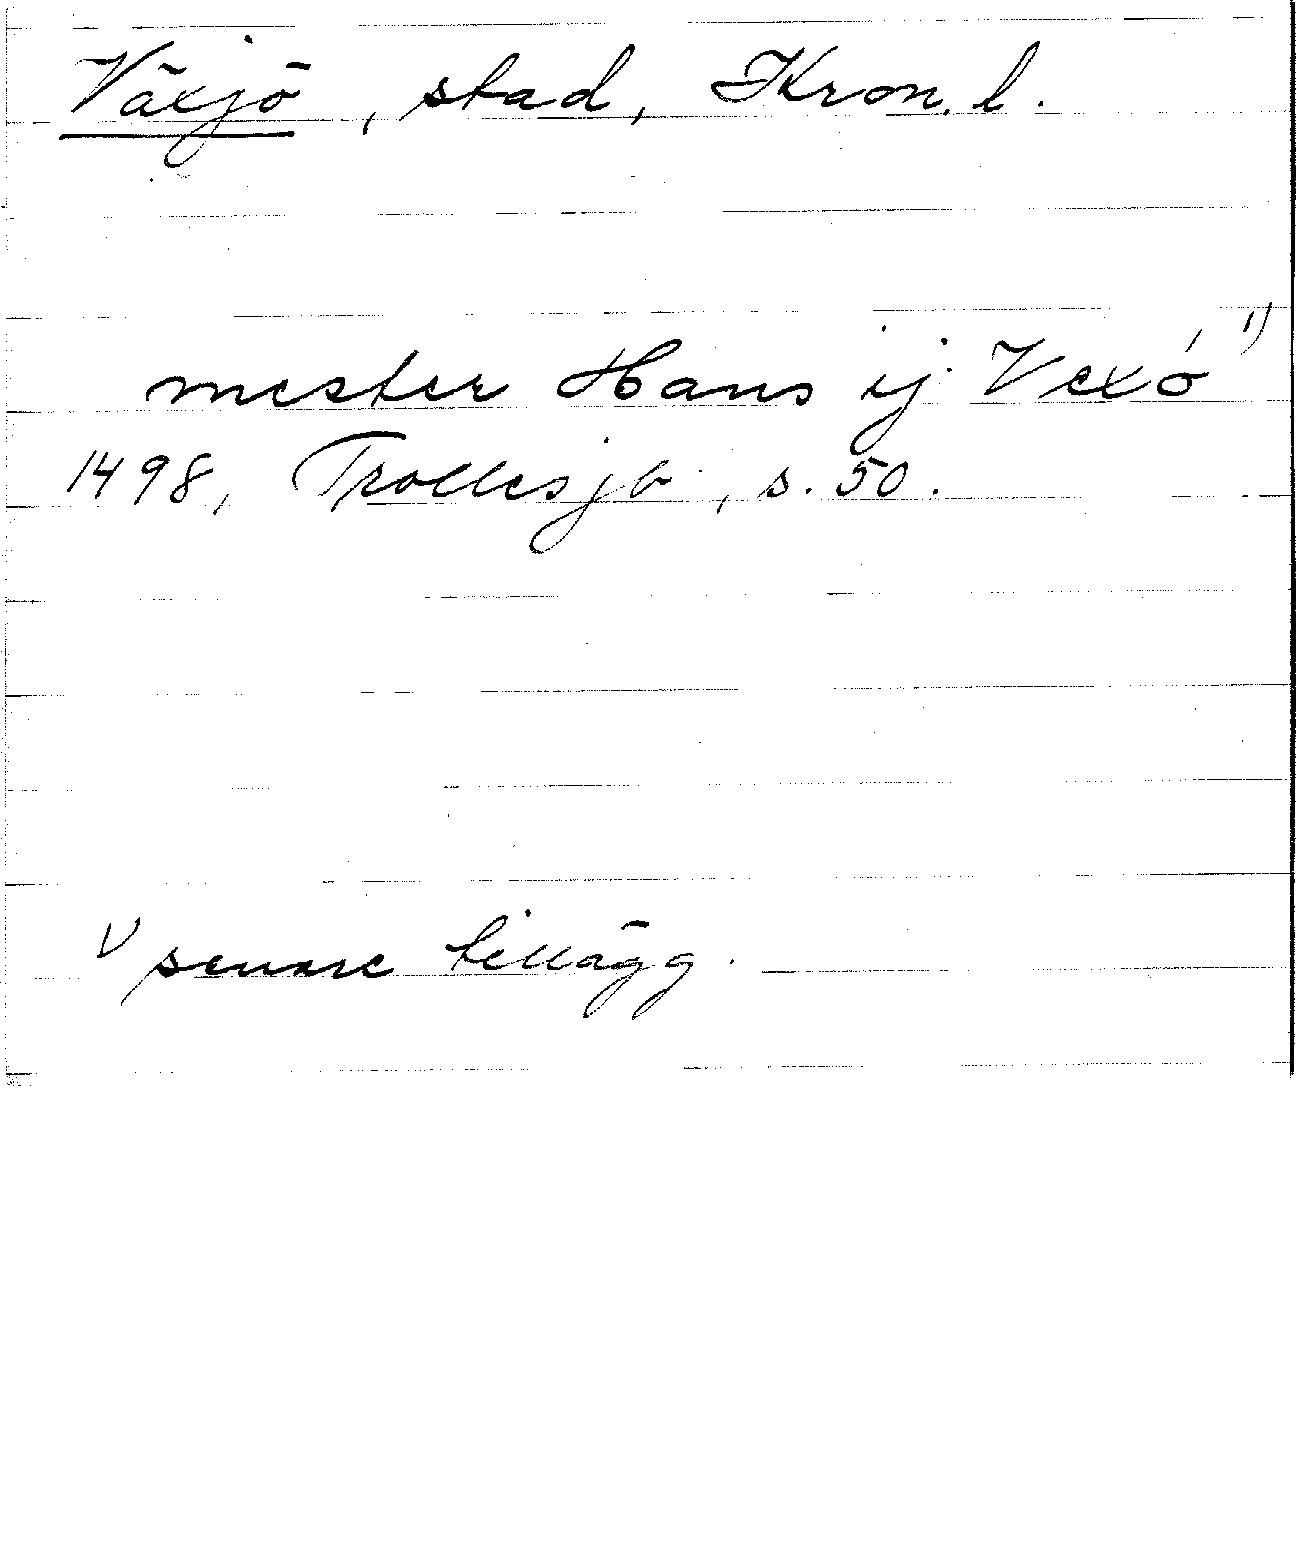 Växjö, stad, Kron. l.
mester Hans ij Vexó 1)
1498, Trollesjb, s. 50.
1) senare tillägg.